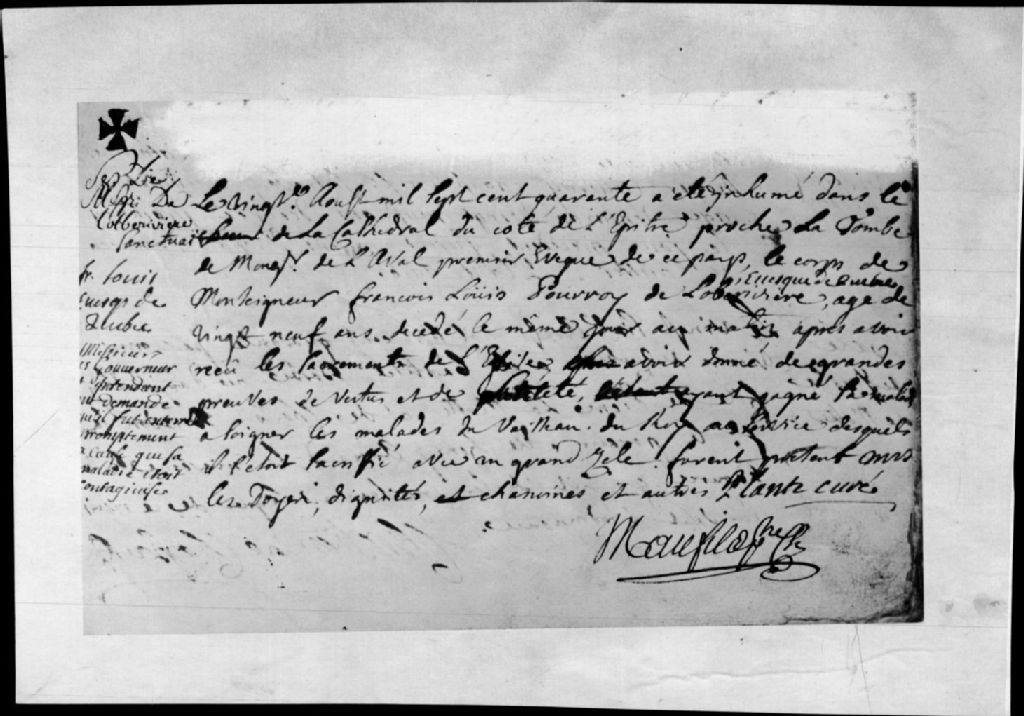 Sepltre
Msgr De
Lobbeniviere
fr. Louis
Evesqs de
Quebec
Messieurs
Gouverneur
Intendant
demandé
qu'il fut enterré
promptement
a cause que sa
maladie étoit
Contagieuse
Le vingt Aoust mil sept cent quarante a eté jnhumé dans le
sanctuaire de la Cathedral du coté de L'Epitre proche La Tombe
de Mongr. de L'Aval premier Eveque de ce pays, le corps de
Monseigneur francois Louis Pourroy de Loberiviere, Evesque de Quebec, agé de
vingt neuf ans decedé le méme jour au matin apres avoir
recu les sacrements de l'Eglise avoir donné de grandes
preuves de vertus et de sainteté, ayant gagné sa maladie
a soigner les malades du Vaisseau du Roy au service desquels
il s'etoit sacrifié avec un grand Zele. furent present mrs
les Doyen, dignités, et chanoines et autres Plante curé